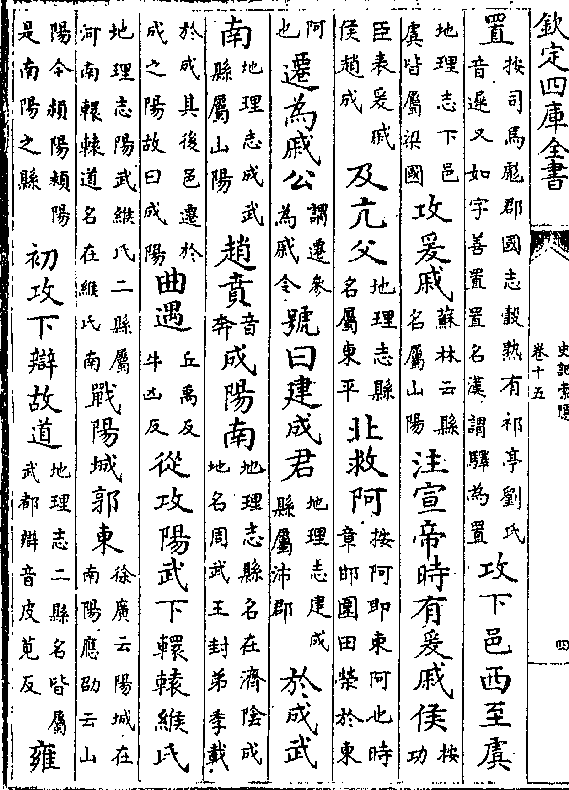 欽定四庫全書
史記索隱
卷十五
四
置按司馬彪郡國志穀熟有祁亭劉氏音遲又如字善置置名漢謂驛為置攻下邑西至虞
地理志下邑虞皆屬梁國攻爰戚蘇林云縣名屬山陽注宣帝時有爰戚侯按功
臣表爰戚侯趙成及亢父地理志縣名屬東平北救阿按阿即東阿也時章邯圍田榮於東
阿也遷為戚公謂遷參為戚令號曰建成君地理志建成縣屬沛郡於成武
南地理志成武縣屬山陽趙賁音奔成陽南地理志縣名在濟隂成地名周武王封弟季載
於成其後邑遷於成之陽故曰成陽曲遇丘禹反牛凶反從攻陽武下轘轅緱氏
地理志陽武緱氏二縣屬河南轘轅道名在緱氏南戰陽城郭東徐廣云陽城在南陽應劭云山
陽今頴陽頴陽是南陽之縣初攻下辯故道地理志二縣名皆屬武都辯音皮莧反雍